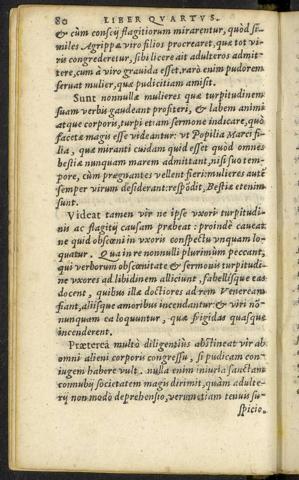 80 LIBER QVARTVS.
& cùm conscij flagitiorum mirarentur, quòd si-
miles Agrippæ viro filios procrearet, quæ tot vi-
ris congrederetur, sibi licere ait adulteros admit-
tere, cùm à viro grauida esset. rarò enim pudorem
feruat mulier, quæ pudicitiam amisit.
Sunt nonnullæ mulieres quæ turpitudinem
suam verbis gaudeant profiteri, & labem animi
atque corporis, turpi etiam sermone indicare, quò
facetæ magis esse videantur: vt Popilia Marci fi-
lia, quæ miranti cuidam quid esset quòd omnes
bestiæ nunquam marem admittant, nisi suo tem-
pore, cùm prægnantes vellent fieri: mulieres autē
semper virum desiderant: respōdit, Bestiæ etenim
sunt.
Videat tamen vir ne ipse vxori turpitudi-
nis ac flagitij causam præbeat: proindé caueat
ne quid obscœni in vxoris conspectu vnquam lo-
quatur. Qua in re nonnulli plurimùm peccant,
qui verborum obscœnitate & sermonis turpitudi-
ne vxores ad libidinem alliciunt, fabellisque eas
docent, quibus illæ doctiores ad rem Veneream
fiant, aliisque amoribus incendantur: & viri nō-
nunquam ea loquuntur, quæ frigidas quasque
incenderent.
Præterea multò diligentiùs abstineat vir ab
omni alieni corporis congressu, si pudicam con-
iugem habere vult. nulla enim iniuria sanctam
connubij societatem magis dirimit, quàm adulte-
rij non modò deprehensio, verumetiam tenuis su-
spicio.